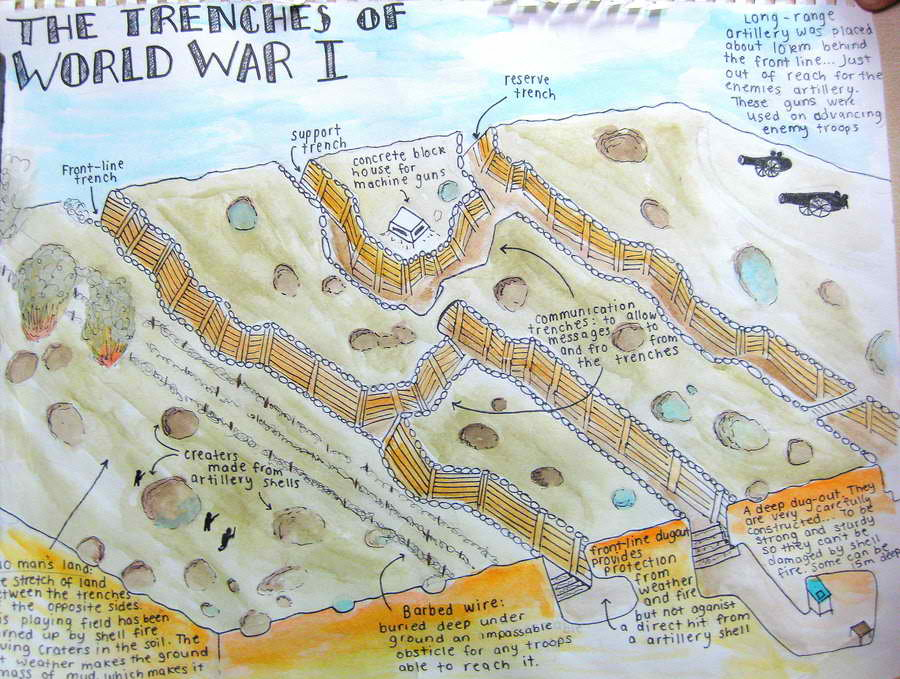 THE TRENCHES OF
WORLD WAR I
Long-range
artillery was placed
about 10km behind
the front line... Just
out of reach for the
enemies artillery.
These guns were
used on advancing
enemy troops
reserve
trench
support
trench
Front-line
trench
concrete block
house for
machine guns
communication
trenches: to allow
messages to
and fro from
the trenches
creaters
made from
artillery shells
no man's land:
stretch of land
between the trenches
the opposite sides.
playing field has been
by shell fire
craters in the soil. The
weather makes the ground
mass of mud, which makes it
Barbed wire:
buried deep under
ground an impassable
obstacle for any troops
able to reach it.
front-line dugout
provides
protection
from
weather
and fire
but not aganist
a direct hit from
a artillery shell
A deep dug-out. They
are very carefully
constructed... To be
strong and sturdy
so they can't be
damaged by shell
fire. Some can be
15m deep